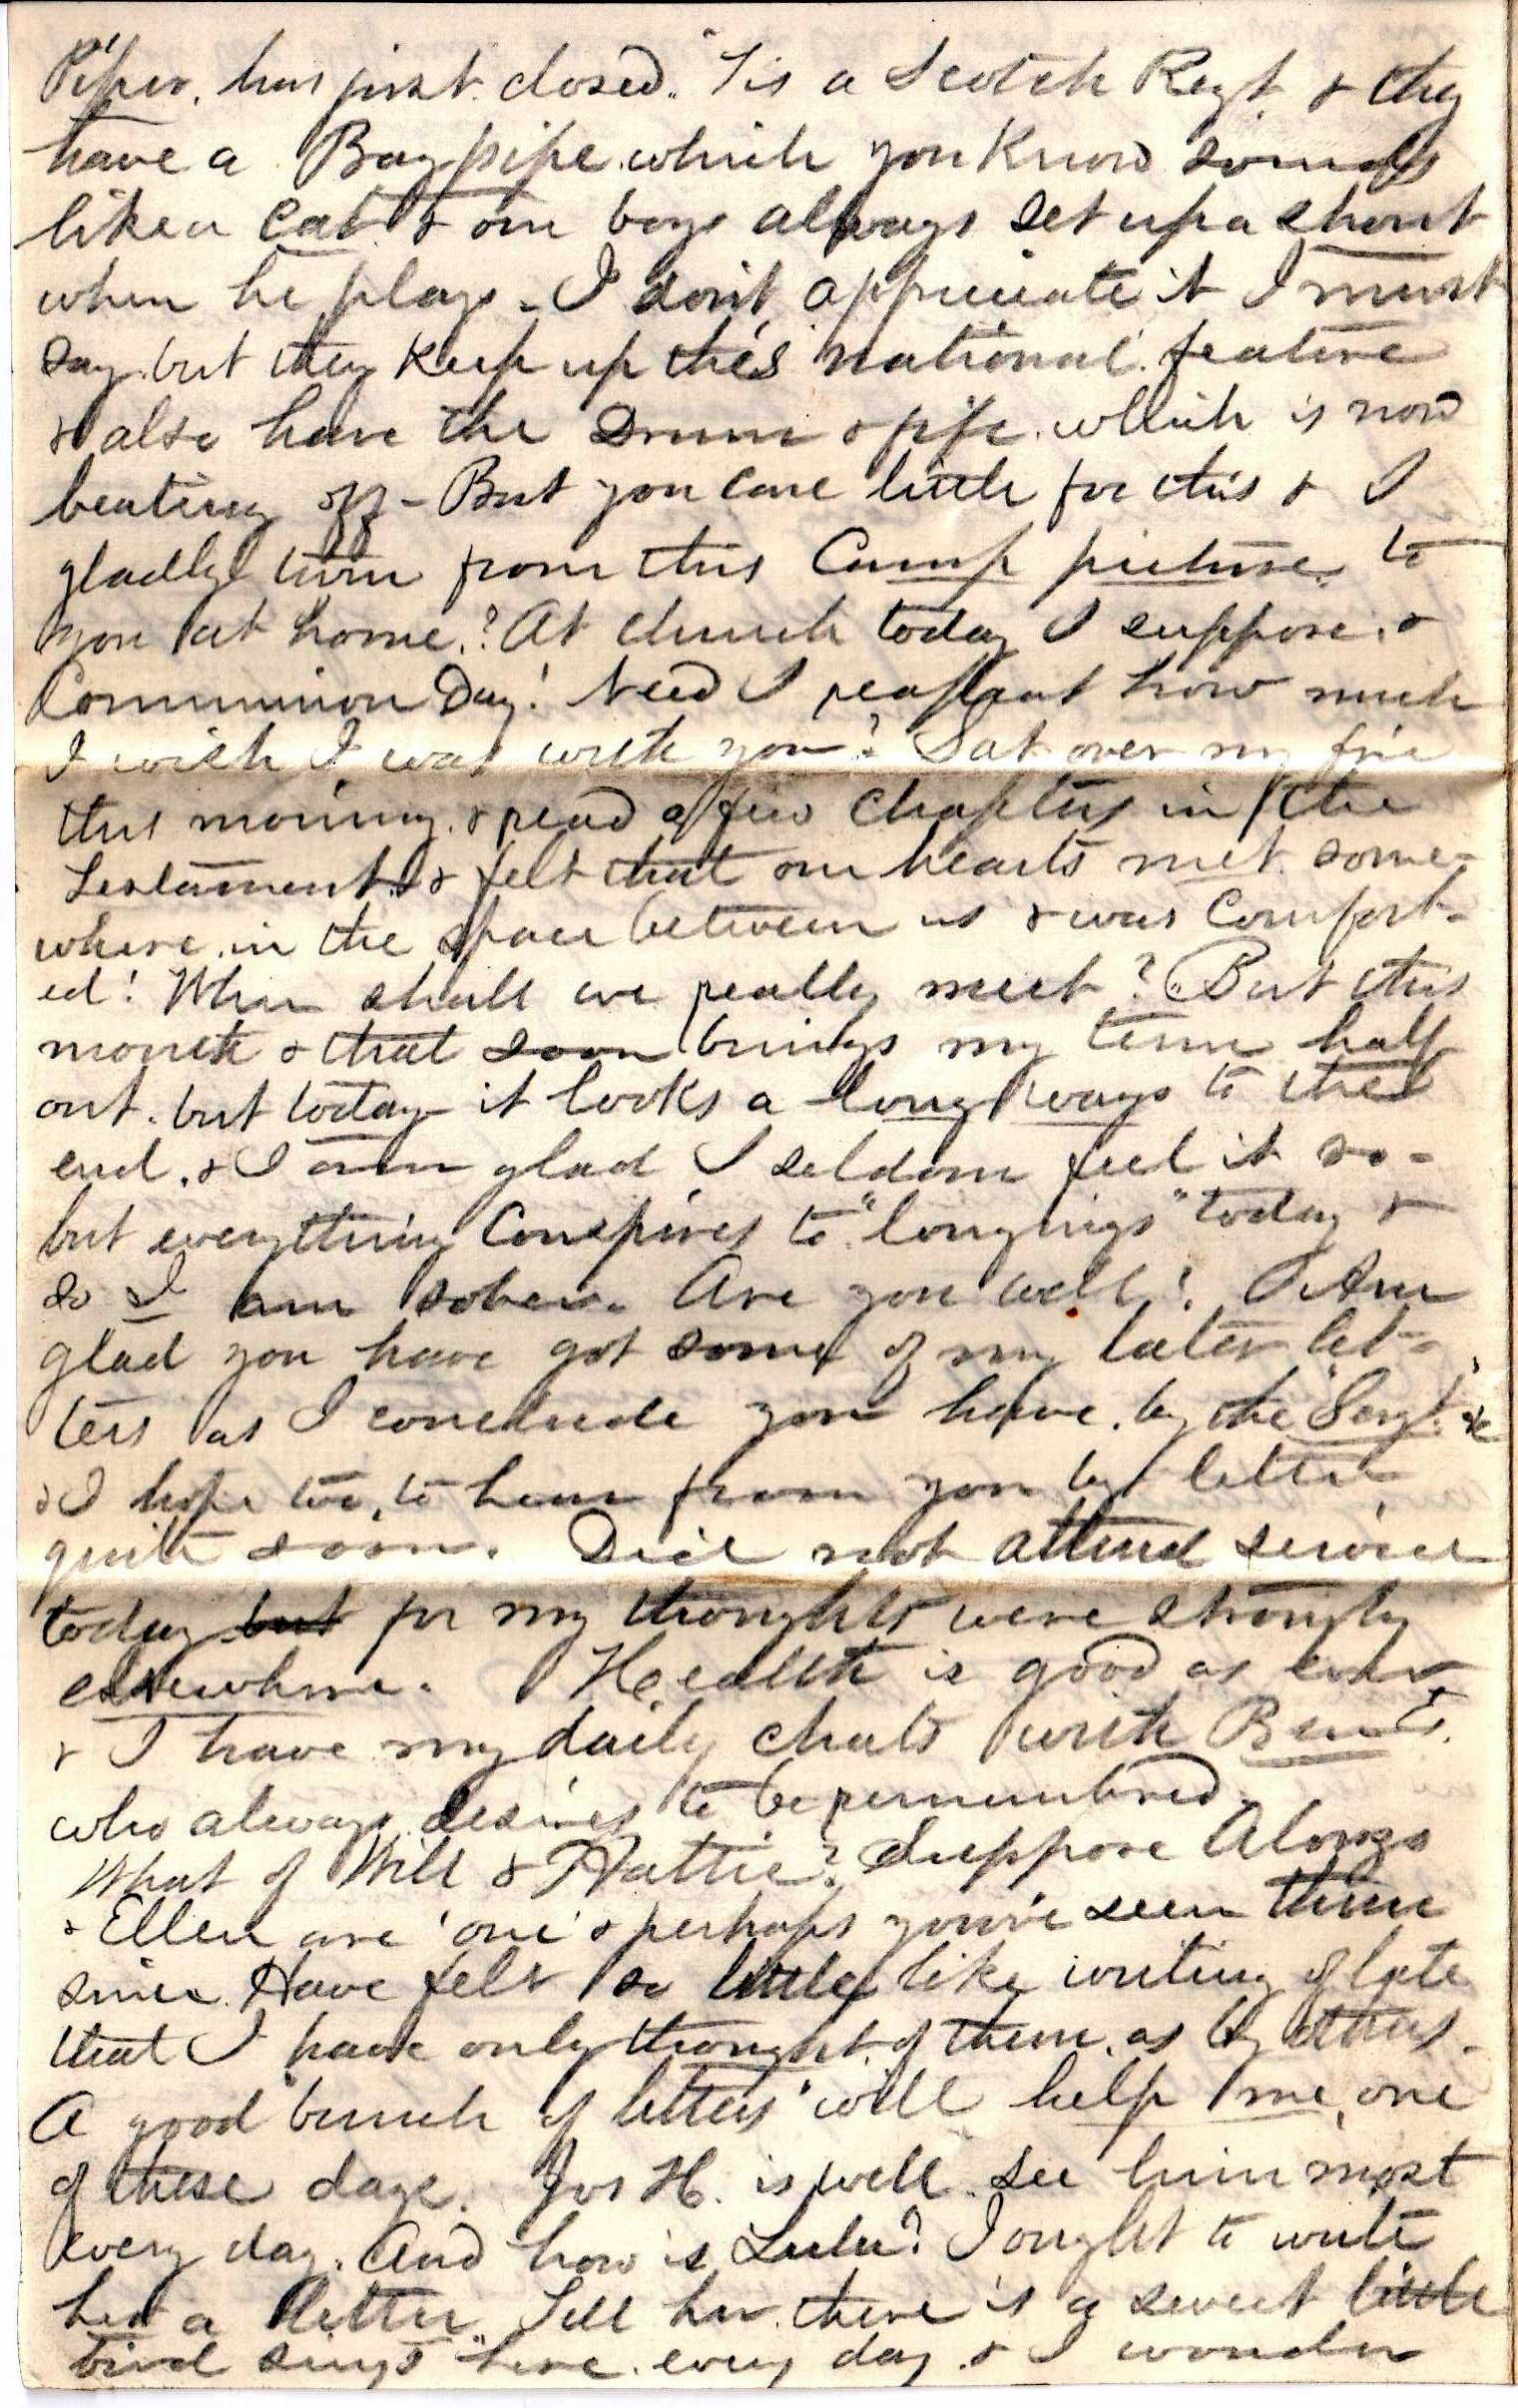 Piper, has just closed. 'Tis a Scotch Regt & they
have a Bagpipe which you know sounds
like a cat & our boys always set up a shout
when he plays - I don't appreciate it I must
say, but they keep up this national feature
& also have the Drum & fife which is now
beating off - But you care little for this & I
gladly turn from this Camp picture to
you at home? At church today I suppose, &
Communion Day! Need I repeat how much
I wish I was with you? Sat over my fire
this morning, & read a few chapters in the
Testament & felt that our hearts met some-
where in the space between us & was Comfort-
ed! When shall we really meet? "But this
month & that soon brings my term half
out, but today it looks a long ways to the
end, & I am glad I seldom feel it so -
but everything Conspires to "longings" today &
so I am sober. Are you well? Am
glad you have got some of my later let-
ters as I conclude you have, by the "Sergt" &c
& I hope too, to hear from you by letter
quite soon. Did not attend service
today but for my thoughts were strongly
elsewhere. Health is good as ever
& I have my daily chats with
who always desires to be remembered.
What of Will & Hattie? Suppose Alonzo
& Ellen are 'one' & perhaps you've seen them
since. Have felt so little like writing of late
that I have only thought of them, as by others.
A good "bunch of letters" will help me, one
of these days. Jos H. is well. See him most
every day. And how is Lulu? I ought to write
her a letter. Tell her there is a sweet little
bird sings here every day & I wonder